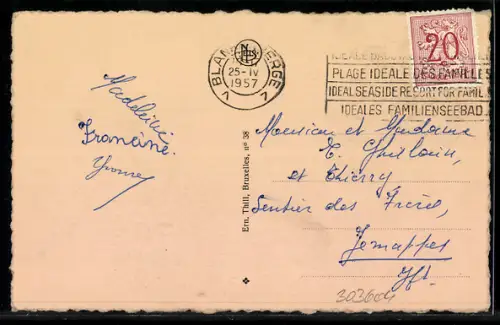 BLANKENBERGE
25-IV
1957
1 1
PLAGE IDEALE DES FAMILLES
IDEAL SEASIDE RESORT FOR FAMIL
IDEALES FAMILIENSEEBAD
20
Madeleine
Francine.
Yvonne
Ern. Thill, Bruxelles, nº 38
Monsieur et Madame
Ghislain,
et Thierry
Sentier des Frères,
Jemappes
3036